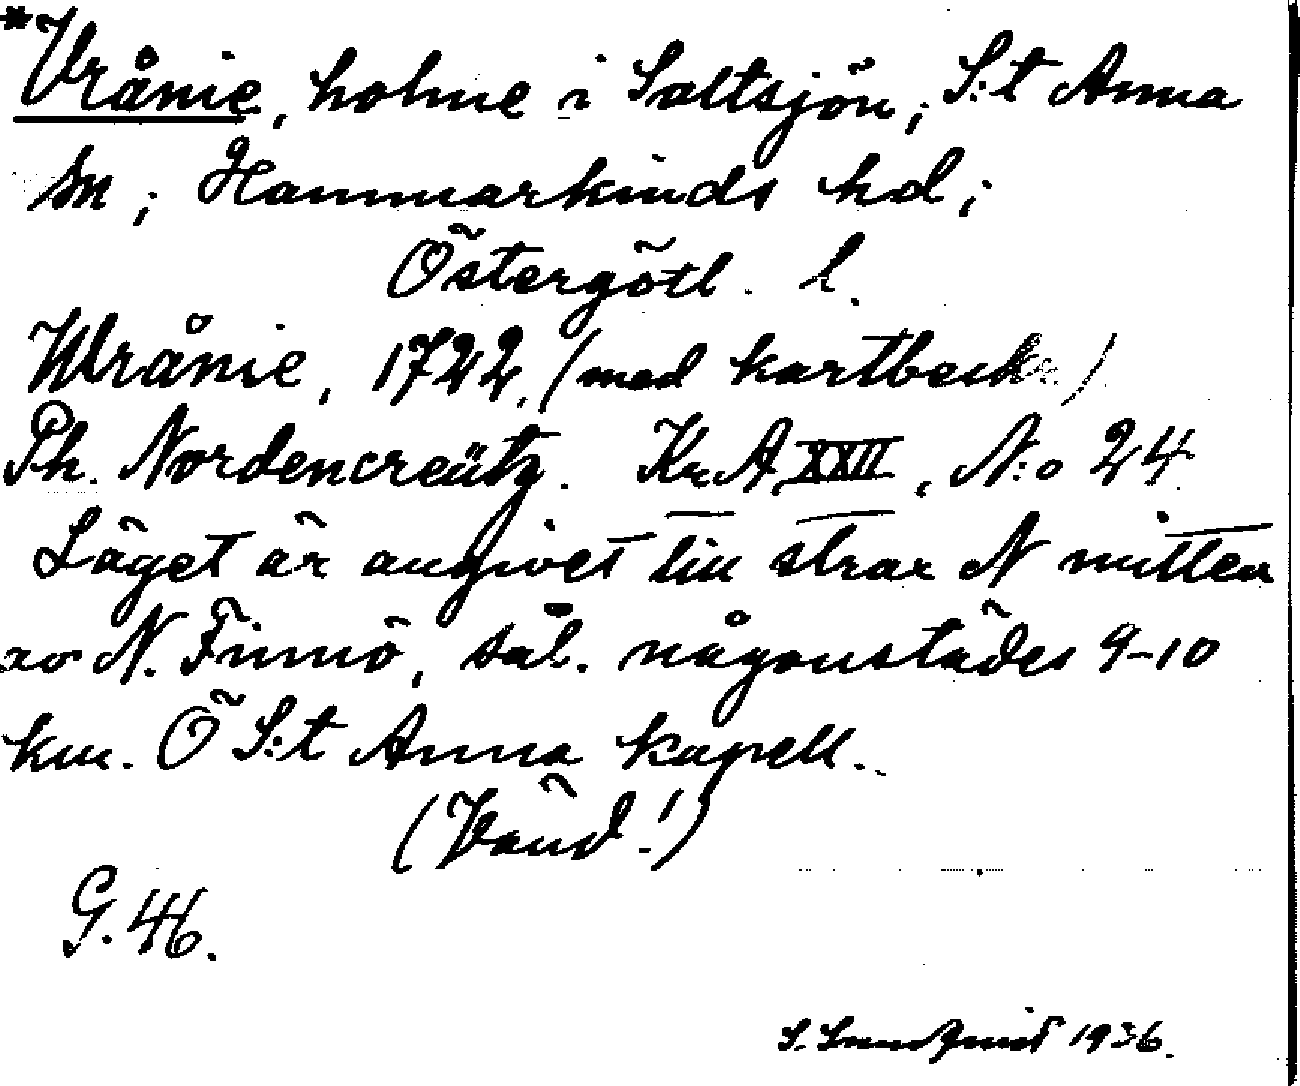 *Vrånie, holme i Saltsjön, S:t Anna
sn; Hammarkinds hd;
Östergötl. l.
Wrånie, 1722. (med kartbeckn.)
Ph. Nordencreütz. Kr.A. XXII, N:o 24
Läget är angivet till strax N mitten
av N. Finnö, sål. någonstädes 9-10
km. Ö S:t Anna kapell.
(Vänd!)
G. 46.
S. Lundqvist 1936.